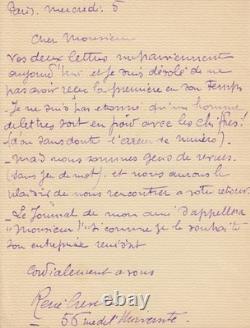 Paris, mercredi 5
Cher Monsieur
Vos deux lettres me parviennent
aujourd'hui et je suis désolé de ne
pas avoir reçu la première en son temps
- Je ne suis pas etonné qu'un homme
de lettres soit en froid avec les chiffres!
(d'où sans doute l'erreur de numéro).
- mais nous sommes gens de revues.
(sans jeu de mot). et nous aurons le
plaisir de nous rencontrer a votre retour
- Le Journal de mon ami s'appellera
"Monsieur!" si comme je le souhaite
son entreprise réussit
Cordialement a vous
René
56 rue de l'Université